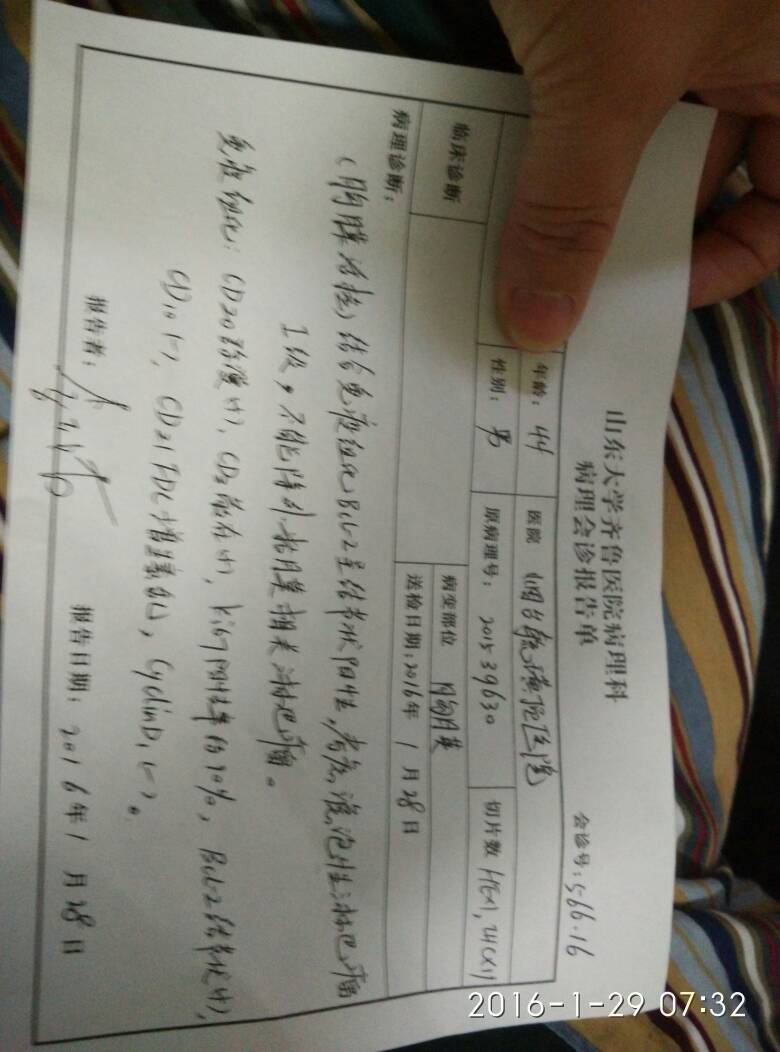 山东大学齐鲁医院病理科
病理会诊报告单
会诊号：S66·16
年龄：44 医院 烟台毓璜顶医院
性别：男 原病理号：201539630 切片数 HE×1, IHC×11
临床诊断 病变部位 胸膜
送检日期：2016年1月28日
病理诊断：
（胸膜活检）结合免疫组化Bcl-2呈结节状阳性，考虑滤泡性淋巴瘤
I级，不能排除粘膜相关淋巴瘤。
免疫组化：CD20弥漫(+)，CD3散在(+)，Ki67阳性率约10%，Bcl-2结节状(+)，
CD10(-)，CD21 FDC增生，CyclinD1(-)。
报告者： 报告日期：2016年1月28日
2016-1-29 07:32